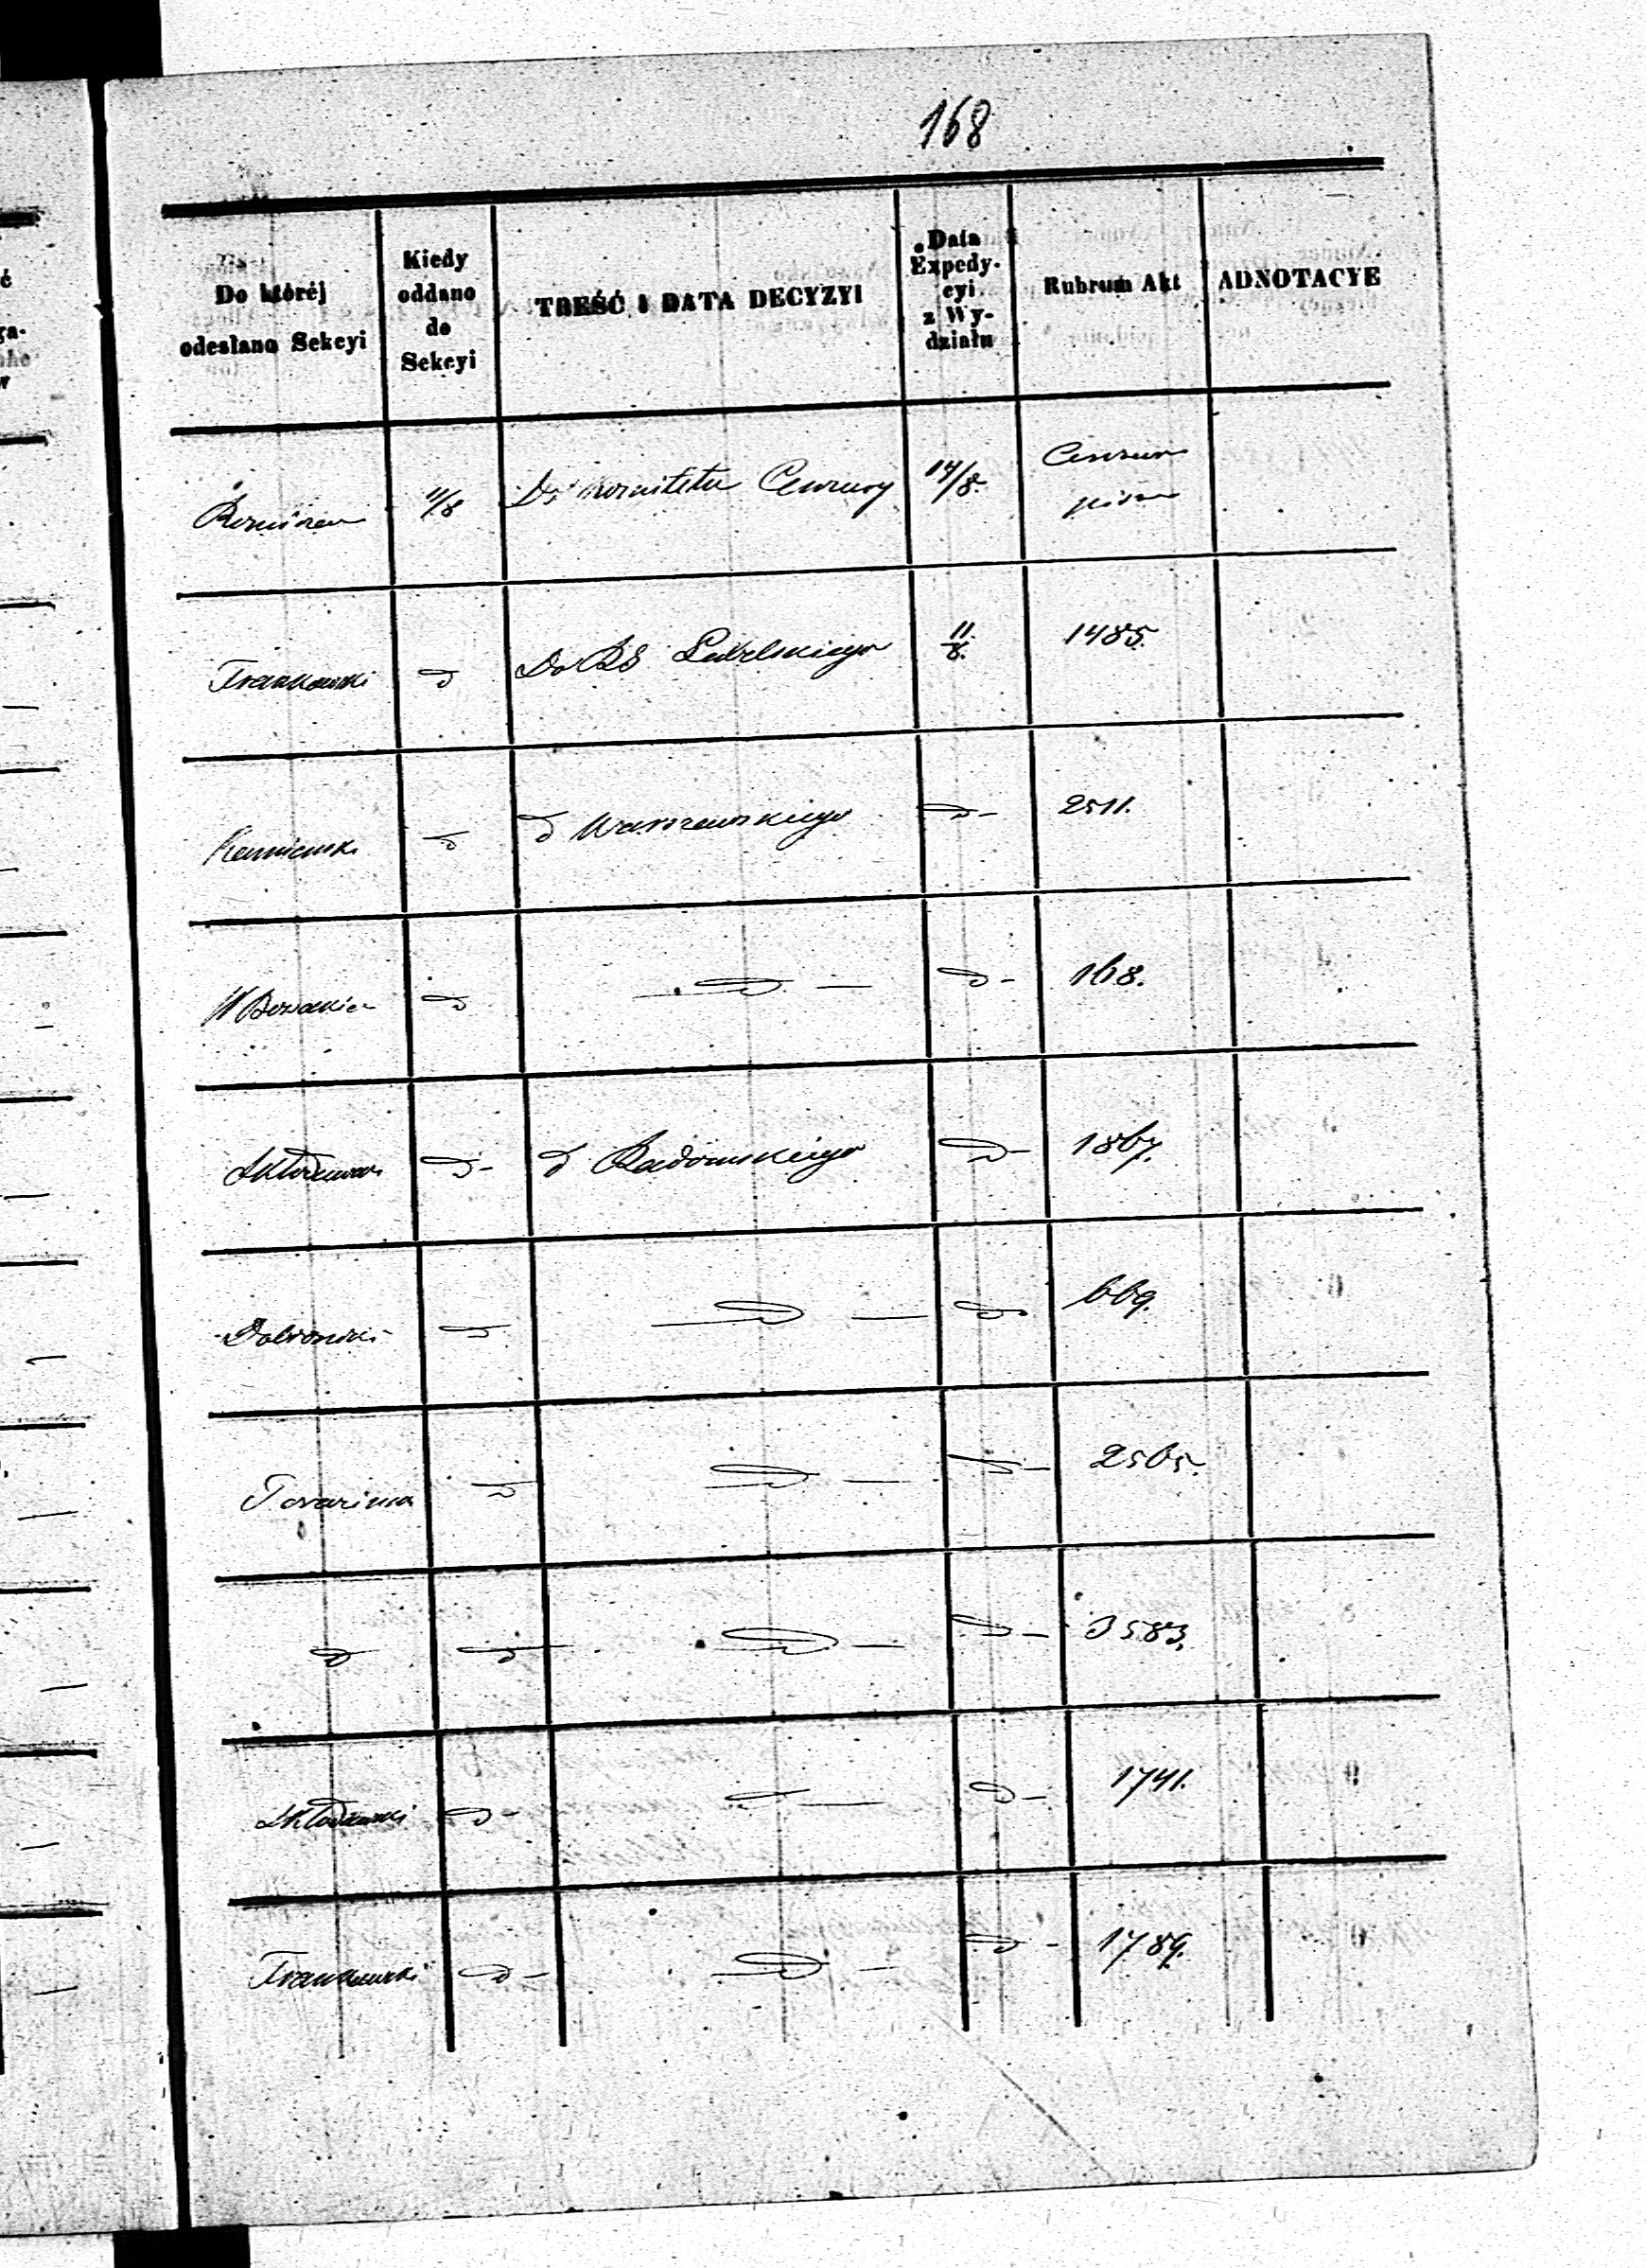 168
Do której
odesłano Sekcyi
Kiedy
oddano
do
Sekcyi
TREŚĆ I DATA DECYZYI
Data
Expedy-
cyi
z Wy-
działu
Rubrum Akt
ADNOTACYE
11/8 Do Komitetu Cenzury 14/8. Cenzura
pism
Frankowski d Do RG Lubelskiego 11/8. 1485.
Kamieński d d Warszawskiego d- 2511.
d d - d- 168.
Skłodowski d- d Radomskiego d- 1867.
Dobrowski d d - d 669.
d d - d- 2565.
d d d - d- 3583.
Skłodowski d- d - d- 1741.
Frankowski d- d - d- 1789.